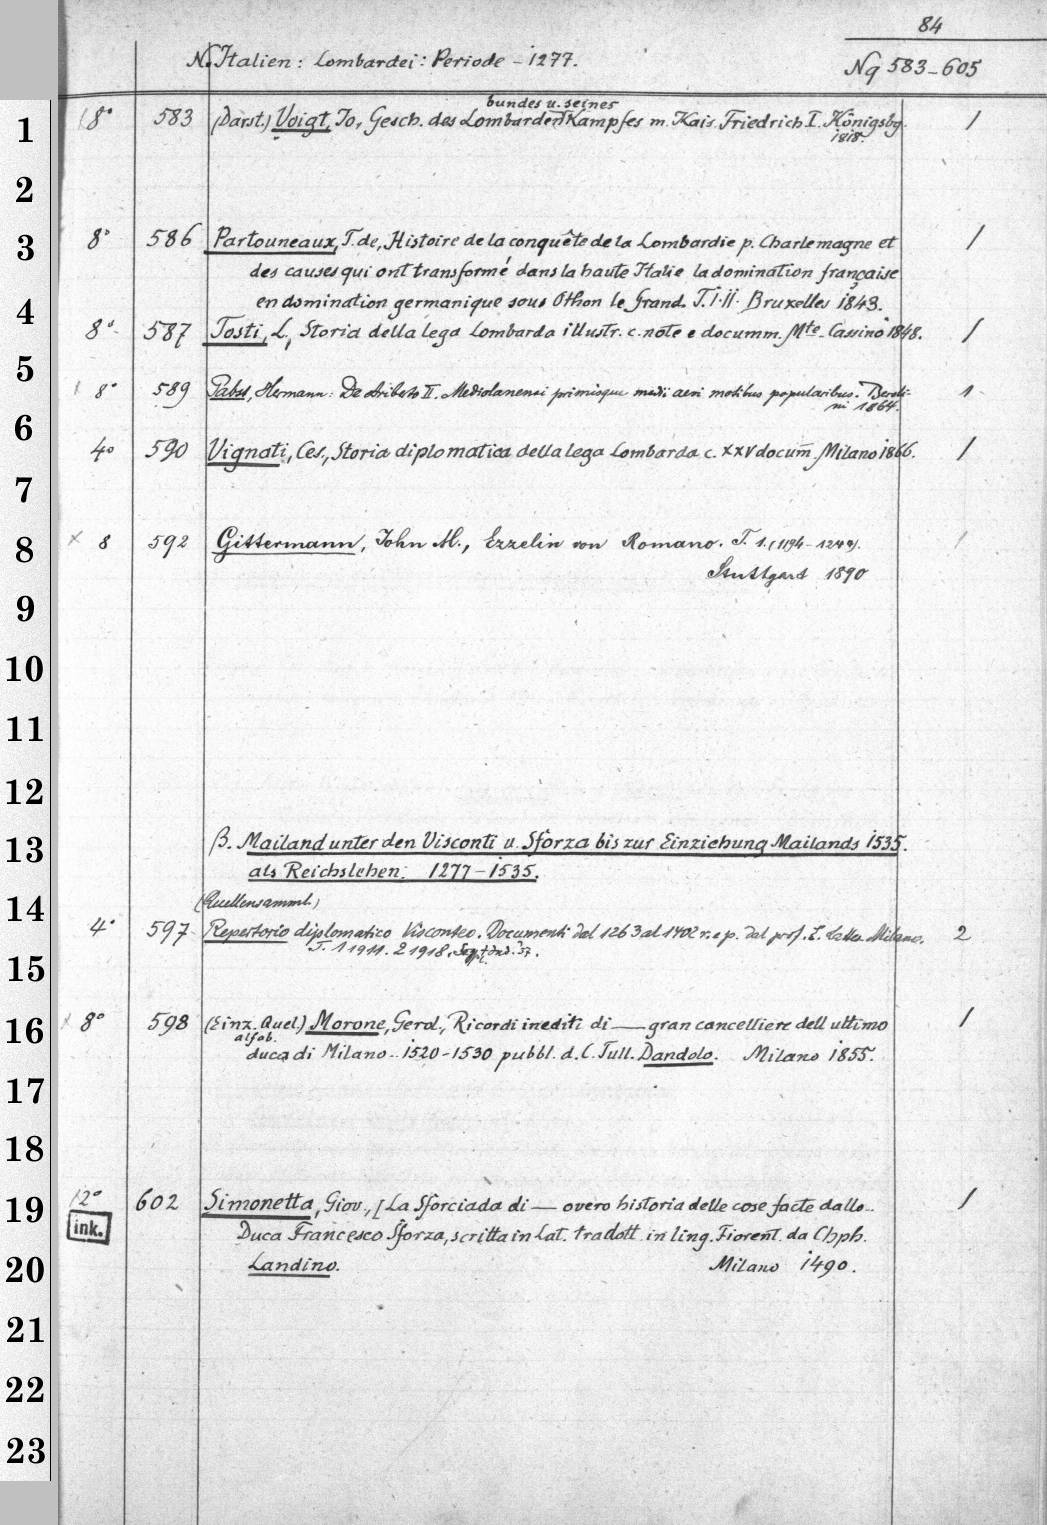 84
N. Italien: Lombardei: Periode - 1277.
Nq 583-605
1
8° 583 (Darst.) Voigt, Jo., Gesch. des Lombarden bundes u. seines Kampfes m. Kais. Friedrich I. Königsbg. 1
1818.
2
3
8° 586 Partouneaux, T. de, Histoire de la conquête de la Lombardie p. Charlemagne et 1
des causes qui ont transformé dans la haute Italie la domination française
4
en domination germanique sous Othon le Grand. T. I.II. Bruxelles 1843.
8° 587 Tosti, L., Storia della lega Lombarda illustr. c. note e documm. Mte-Cassino 1848. 1
5
8° 589 Pabst, Hermann: De Ariberto II. Mediolanensi primisque medii aevi motibus popularibus. Beroli- 1
ni 1864.
6
4° 590 Vignati, Ces., Storia diplomatica della lega Lombarda c. XXV docum. Milano 1866. 1
7
8
x 8 592 Gittermann, John M., Ezzelin von Romano. T. 1. (1194-1244). 1
Stuttgart 1890
9
10
11
12
13
β. Mailand unter den Visconti u. Sforza bis zur Einziehung Mailands 1535.
als Reichslehen: 1277-1535.
14
(Quellensamml.)
4° 597 Repertorio diplomatico Visconteo. Documenti dal 1263 al 1402 r. e p. dal prof. Milano. 2
T. 1 1911. 2 1918.
15
16
x 8° 598 (Einz. Quel.) Morone, Gerol., Ricordi inediti di — gran cancelliere dell ultimo 1
alfab.
duca di Milano - 1520-1530 pubbl. d. C. Tull. Dandolo. Milano 1855.
17
18
19
2° 602 Simonetta, Giov., [La Sforciada di — overo historia delle cose facte dallo 1
ink.
Duca Francesco Sforza, scritta in Lat. tradott. in ling. Fiorent. da Chph.
20
Landino. Milano 1490.
21
22
23